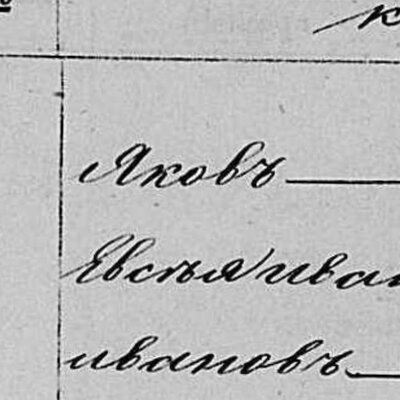 к
Яковъ
Евсѣя иван
ивановъ